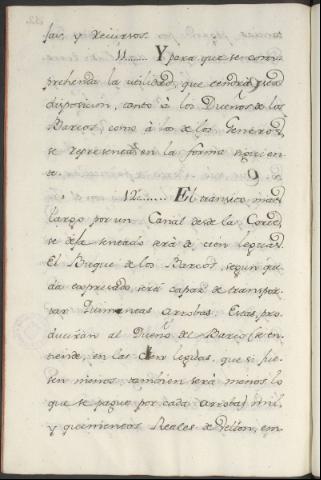 jas, y Recursos.
11...... Y para que se com-
prehenda la utilidad, que tendrá
disposicion, tanto à los Dueños de los
Barcos, como à los de los Generos,
se representa en la forma siguien-
te.
12....... El transito mas
largo por un Canal desde la Corte,
se deja sentado será de cien leguas.
El Buque de los Barcos, segun que-
da expresado, será capaz de transpor-
tar quinientas arrobas. Estas, pro-
ducirán al Dueño del Barco (se en-
tiende, en las cien leguas, que si fue-
sen menos, tambien será menos lo
que se pague por cada arroba) mil,
y quinientos Reales de Vellon, em-